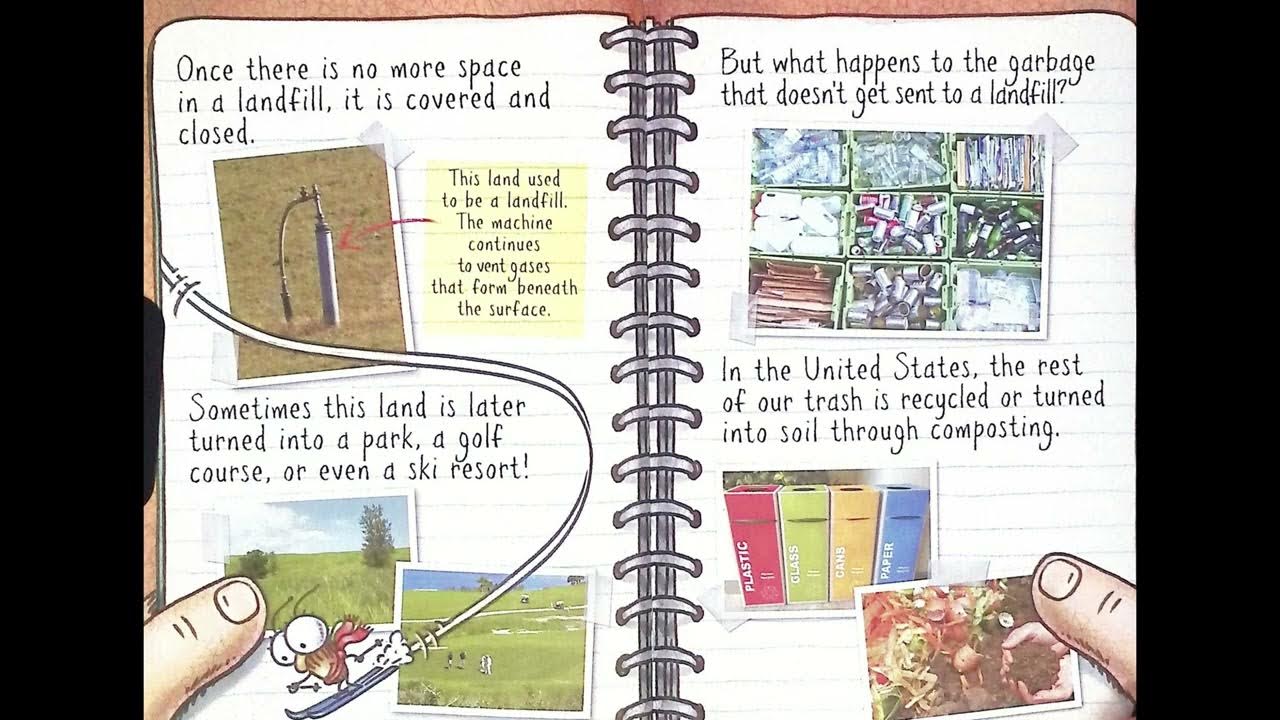 Once there is no more space
in a landfill, it is covered and
closed.
This land used
to be a landfill.
The machine
continues
to vent gases
that form beneath
the surface.
Sometimes this land is later
turned into a park, a golf
course, or even a ski resort!
But what happens to the garbage
that doesn't get sent to a landfill?
In the United States, the rest
of our trash is recycled or turned
into soil through composting.
PLASTIC
GLASS
CANS
PAPER